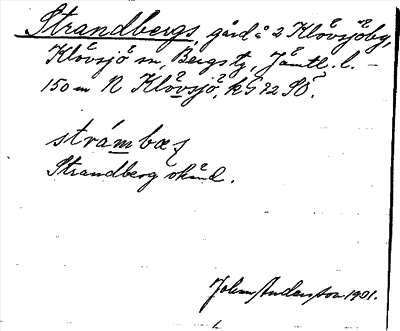 Strandbergs, gård å 2 Klövsjöby,
Klövsjö sn, Bergs tg, Jämtl. l. –
150 m N Klövsjö, k G 72 SÖ.
strámbæʂ
Strandberg okänd.
Johan Andersson 1901.